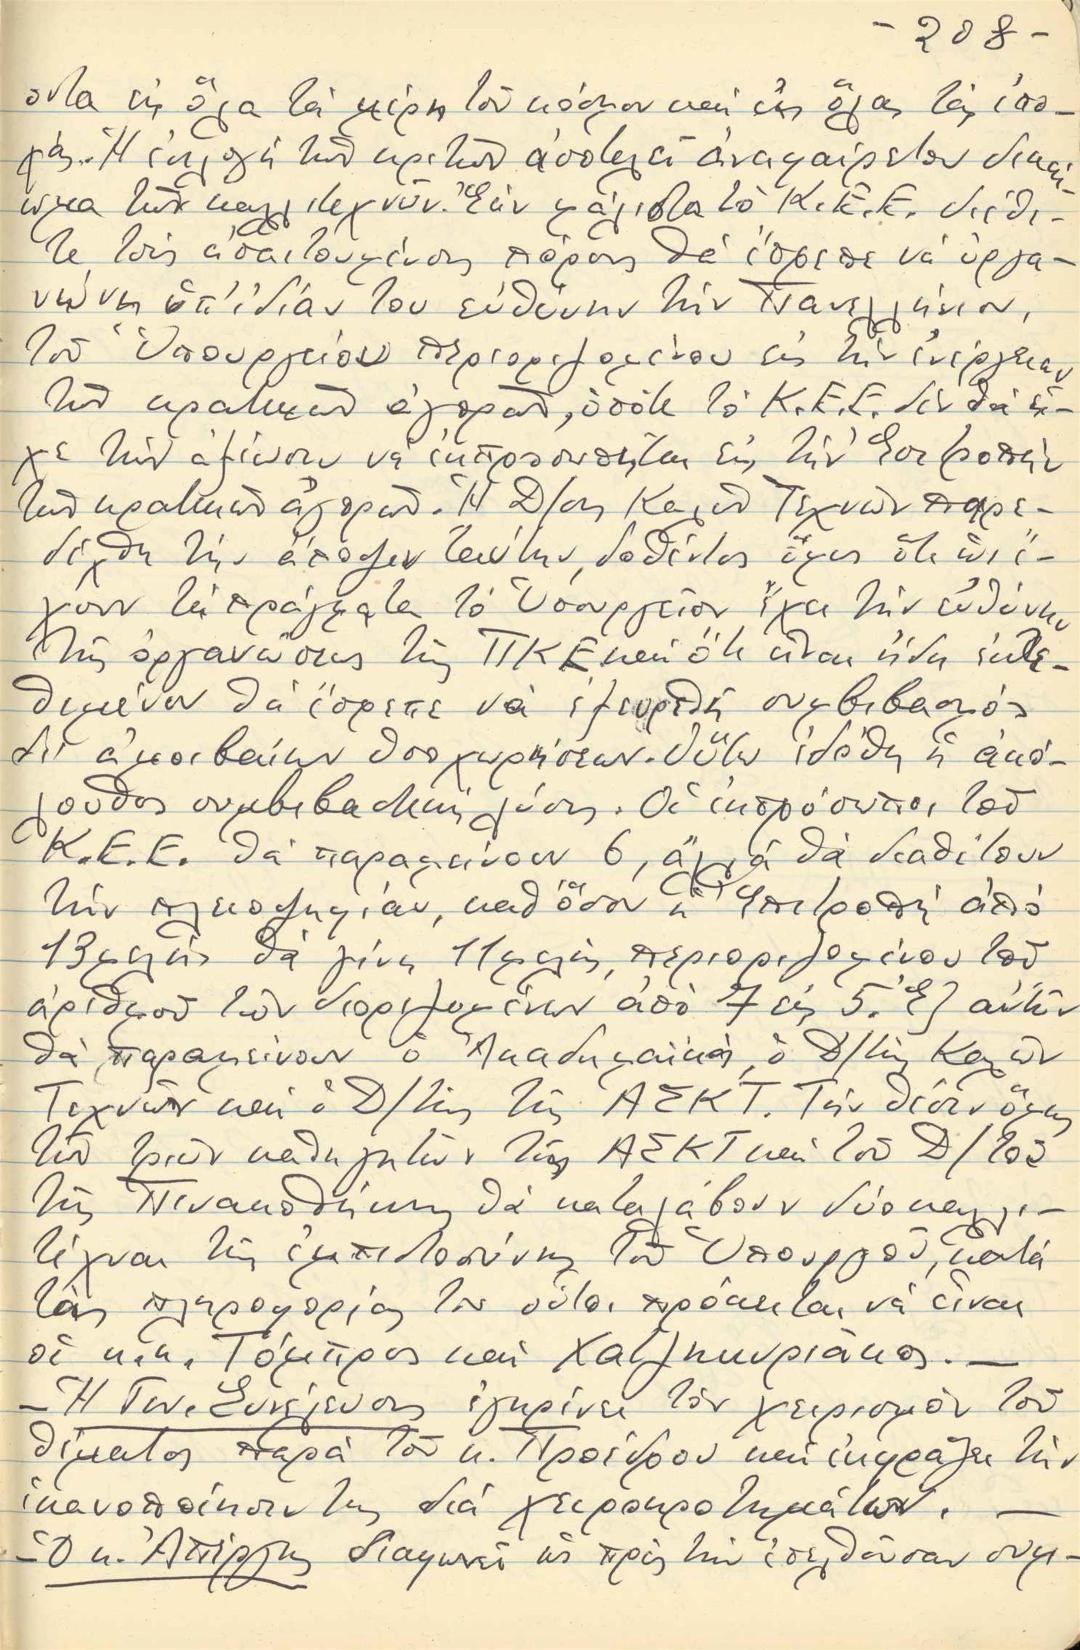 - 208 -
οντα εἰς ὅλα τὰ μέρη τοῦ κόσμου καὶ εἰς ὅλας τὰς ἐπο-
χάς. Ἡ ἐκλογὴ τῶν κριτῶν ἀποτελεῖ ἀναφαίρετον δικαί-
ωμα τῶν καλλιτεχνῶν. Ἐὰν μάλιστα τὸ Κ.Ε.Ε. διέθε-
τε τοὺς ἀπαιτουμένους πόρους θὰ ἔπρεπε νὰ ὀργα-
νώνῃ ὑπ' ἰδίαν του εὐθύνην τὴν Πανελλήνιον,
τοῦ Ὑπουργείου περιοριζομένου εἰς τὴν ἐνέργειαν
τῶν κρατικῶν ἀγορῶν, ὁπότε τὸ Κ.Ε.Ε. δὲν θὰ εἶ-
χε τὴν ἀξίωσιν νὰ ἐκπροσωπῆται εἰς τὴν Ἐπιτροπὴν
τῶν κρατικῶν ἀγορῶν. Ἡ Δ/σις Καλῶν Τεχνῶν παρε-
δέχθη τὴν ἄποψιν ταύτην, δοθέντος ὅμως ὅτι ὡς ἔ-
χουν τὰ πράγματα τὸ Ὑπουργεῖον ἔχει τὴν εὐθύνην
τῆς ὀργανώσεως τῆς ΠΚΕ καὶ ὅτι εἶναι ἤδη ἐκτε-
θειμένον θὰ ἔπρεπε νὰ ἐξευρεθῇ συμβιβασμὸς
δι' ἀμοιβαίων ὑποχωρήσεων. Οὕτω ἐδόθη ἡ ἀκό-
λουθος συμβιβαστικὴ λύσις. Οἱ ἐκπρόσωποι τοῦ
Κ.Ε.Ε. θὰ παραμείνουν 6, ἀλλὰ θὰ διαθέτουν
τὴν πλειοψηφίαν, καθ' ὅσον ἡ Ἐπιτροπὴ ἀπὸ
13μελὴς θὰ γίνῃ 11μελής, περιοριζομένου τοῦ
ἀριθμοῦ τῶν διοριζομένων ἀπὸ 7 εἰς 5. Ἐξ αὐτῶν
θὰ παραμείνουν ὁ Ἀκαδημαϊκός, ὁ Δ/τὴς Καλῶν
Τεχνῶν καὶ ὁ Δ/τὴς τῆς ΑΣΚΤ. Τὴν θέσιν ὅμως
τῶν τριῶν καθηγητῶν τῆς ΑΣΚΤ καὶ τοῦ Δ/τοῦ
τῆς Πινακοθήκης θὰ καταλάβουν δύο καλλι-
τέχναι τῆς ἐμπιστοσύνης τοῦ Ὑπουργοῦ, κατὰ
τὰς πληροφορίας του οὗτοι πρόκειται νὰ εἶναι
οἱ κ.κ. Τόμπρος καὶ Χατζηκυριάκος. —
- Ἡ Γεν. Συνέλευσις ἐγκρίνει τὸν χειρισμὸν τοῦ
θέματος παρὰ τοῦ κ. Προέδρου καὶ ἐκφράζει τὴν
ἱκανοποίησίν της διὰ χειροκροτημάτων. —
- Ὁ κ. Ἀπέργης διαφωνεῖ ὡς πρὸς τὴν ἐπελθοῦσαν συμ-